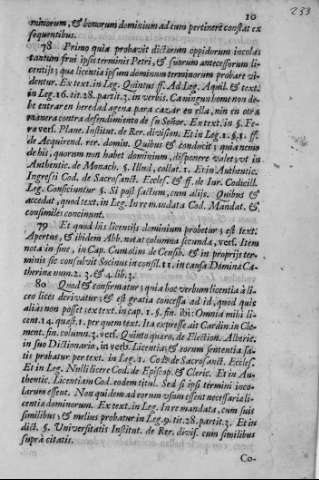 10
233
minorum, & bonorum dominium ad eum pertinere constat ex
sequentibus.
78 Primo quia probavit dictorum oppidorum incolas
tantum frui ipsis terminis Petri, & suorum antecessorum li-
centijs; qua licentia ipsum dominum terminorum probare vi-
dentur. Ex text. in Leg. Quintus ff. Ad Leg. Aquil. & text.
in Leg. 16. tit. 28. partit. 3. in verbis. Ca ningun home non de-
be entrar en heredad agena para caçar en ella, nin en otra
manera contra defendimento de su Señor. Ex text. in §. Fe-
ra vers. Plane. Institut. de Rer. division. Et in Leg. 1. §. 1. ff.
de Acquirend. rer. domin. Quibus & conducit; quia nemo
de his, quorum non habet dominium, disponere valet; ut in
Authentic. de Monach. §. Illud, collat. 1. Et in Authentic.
Ingressi Cod. de Sacrosanct. Eccles. & ff. de Iur. Codicill.
Leg. Conficiuntur §. Si post factum, cum alijs. Quibus &
accedat, quod text. in Leg. In re mandata Cod. Mandat. &
consimiles concinunt.
79 Et quod his licentijs dominium probetur; est text.
Apertus, & ibidem Abb. notat columna secunda, vers. Item
nota in fine, in Cap. Cum olim de Censib. & in proprijs ter-
minis sic consulvit Socinus in consil. 11. in causa Domina Ca-
therina num. 2. 3. & 4. lib. 3.
80 Quod & confirmatur; quia hoc verbum licentia à li-
cero lices derivatur; & est gratia concessa ad id, quod quis
aliàs non posset; ex text. in cap. 1. §. fin. ibi: Omnia mihi li-
cent. 14. quæst. 1. per quem text. Ita expresse ait Cardin. in Cle-
ment. fin. column. 3. vers. Quinto quæro, de Election. Alberic.
in suo Dictionario, in verb. Licentia; & eorum sententia sa-
tis probatur per text. in Leg. 1. Cod. de Sacrosanct. Eccles.
Et in Leg. Nulli licere Cod. de Episcop. & Cleric. Et in Au-
thentic. Licentiam Cod. eodem titul. Sed si ipsi termini inco-
larum essent. Non quidem ad eorum usum esset necessaria li-
centia dominorum. Ex text. in Leg. In re mandata, cum suis
similibus; & melius probatur in Leg. 9. tit. 28. partit. 3. Et in
dict. §. Universitatis Institut. de Rer. divis. cum similibus
suprà citatis.
Co-